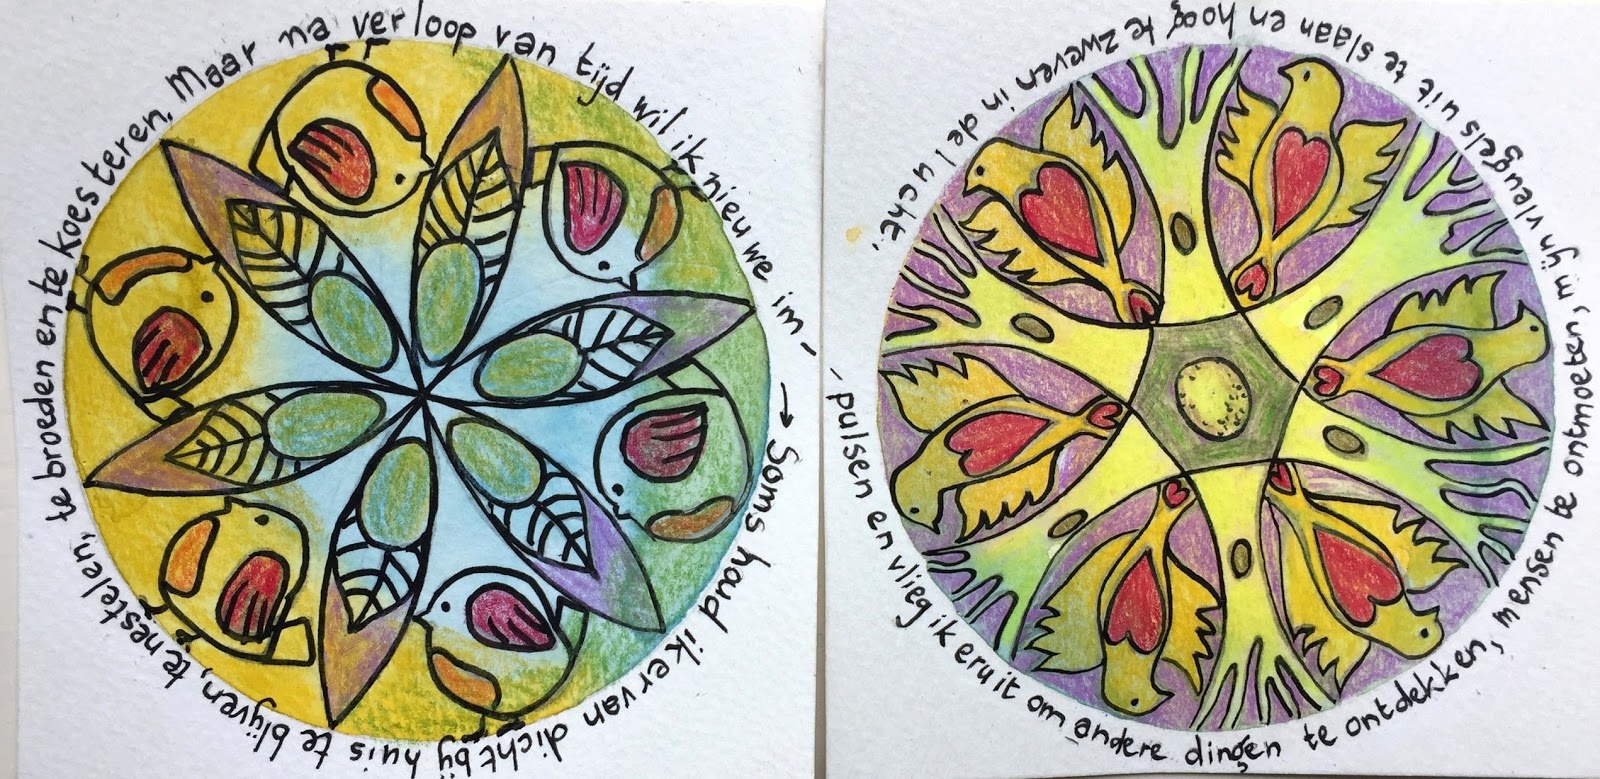 → Soms houd ik ervan dicht bij huis te blijven, te nestelen, te broeden en te koesteren, Maar na verloop van tijd wil ik nieuwe im-
- pulsen en vlieg ik eruit om andere dingen te ontdekken, mensen te ontmoeten, mijn vleugels uit te slaan en hoog te zweven in de lucht!